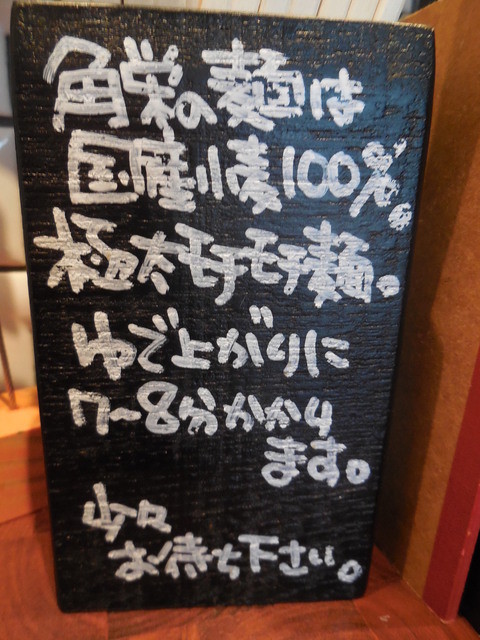 角栄の麺は
国産小麦100%。
極太モチモチ麺。
ゆで上がりに
7〜8分かかり
ます。
少々
お待ち下さい。